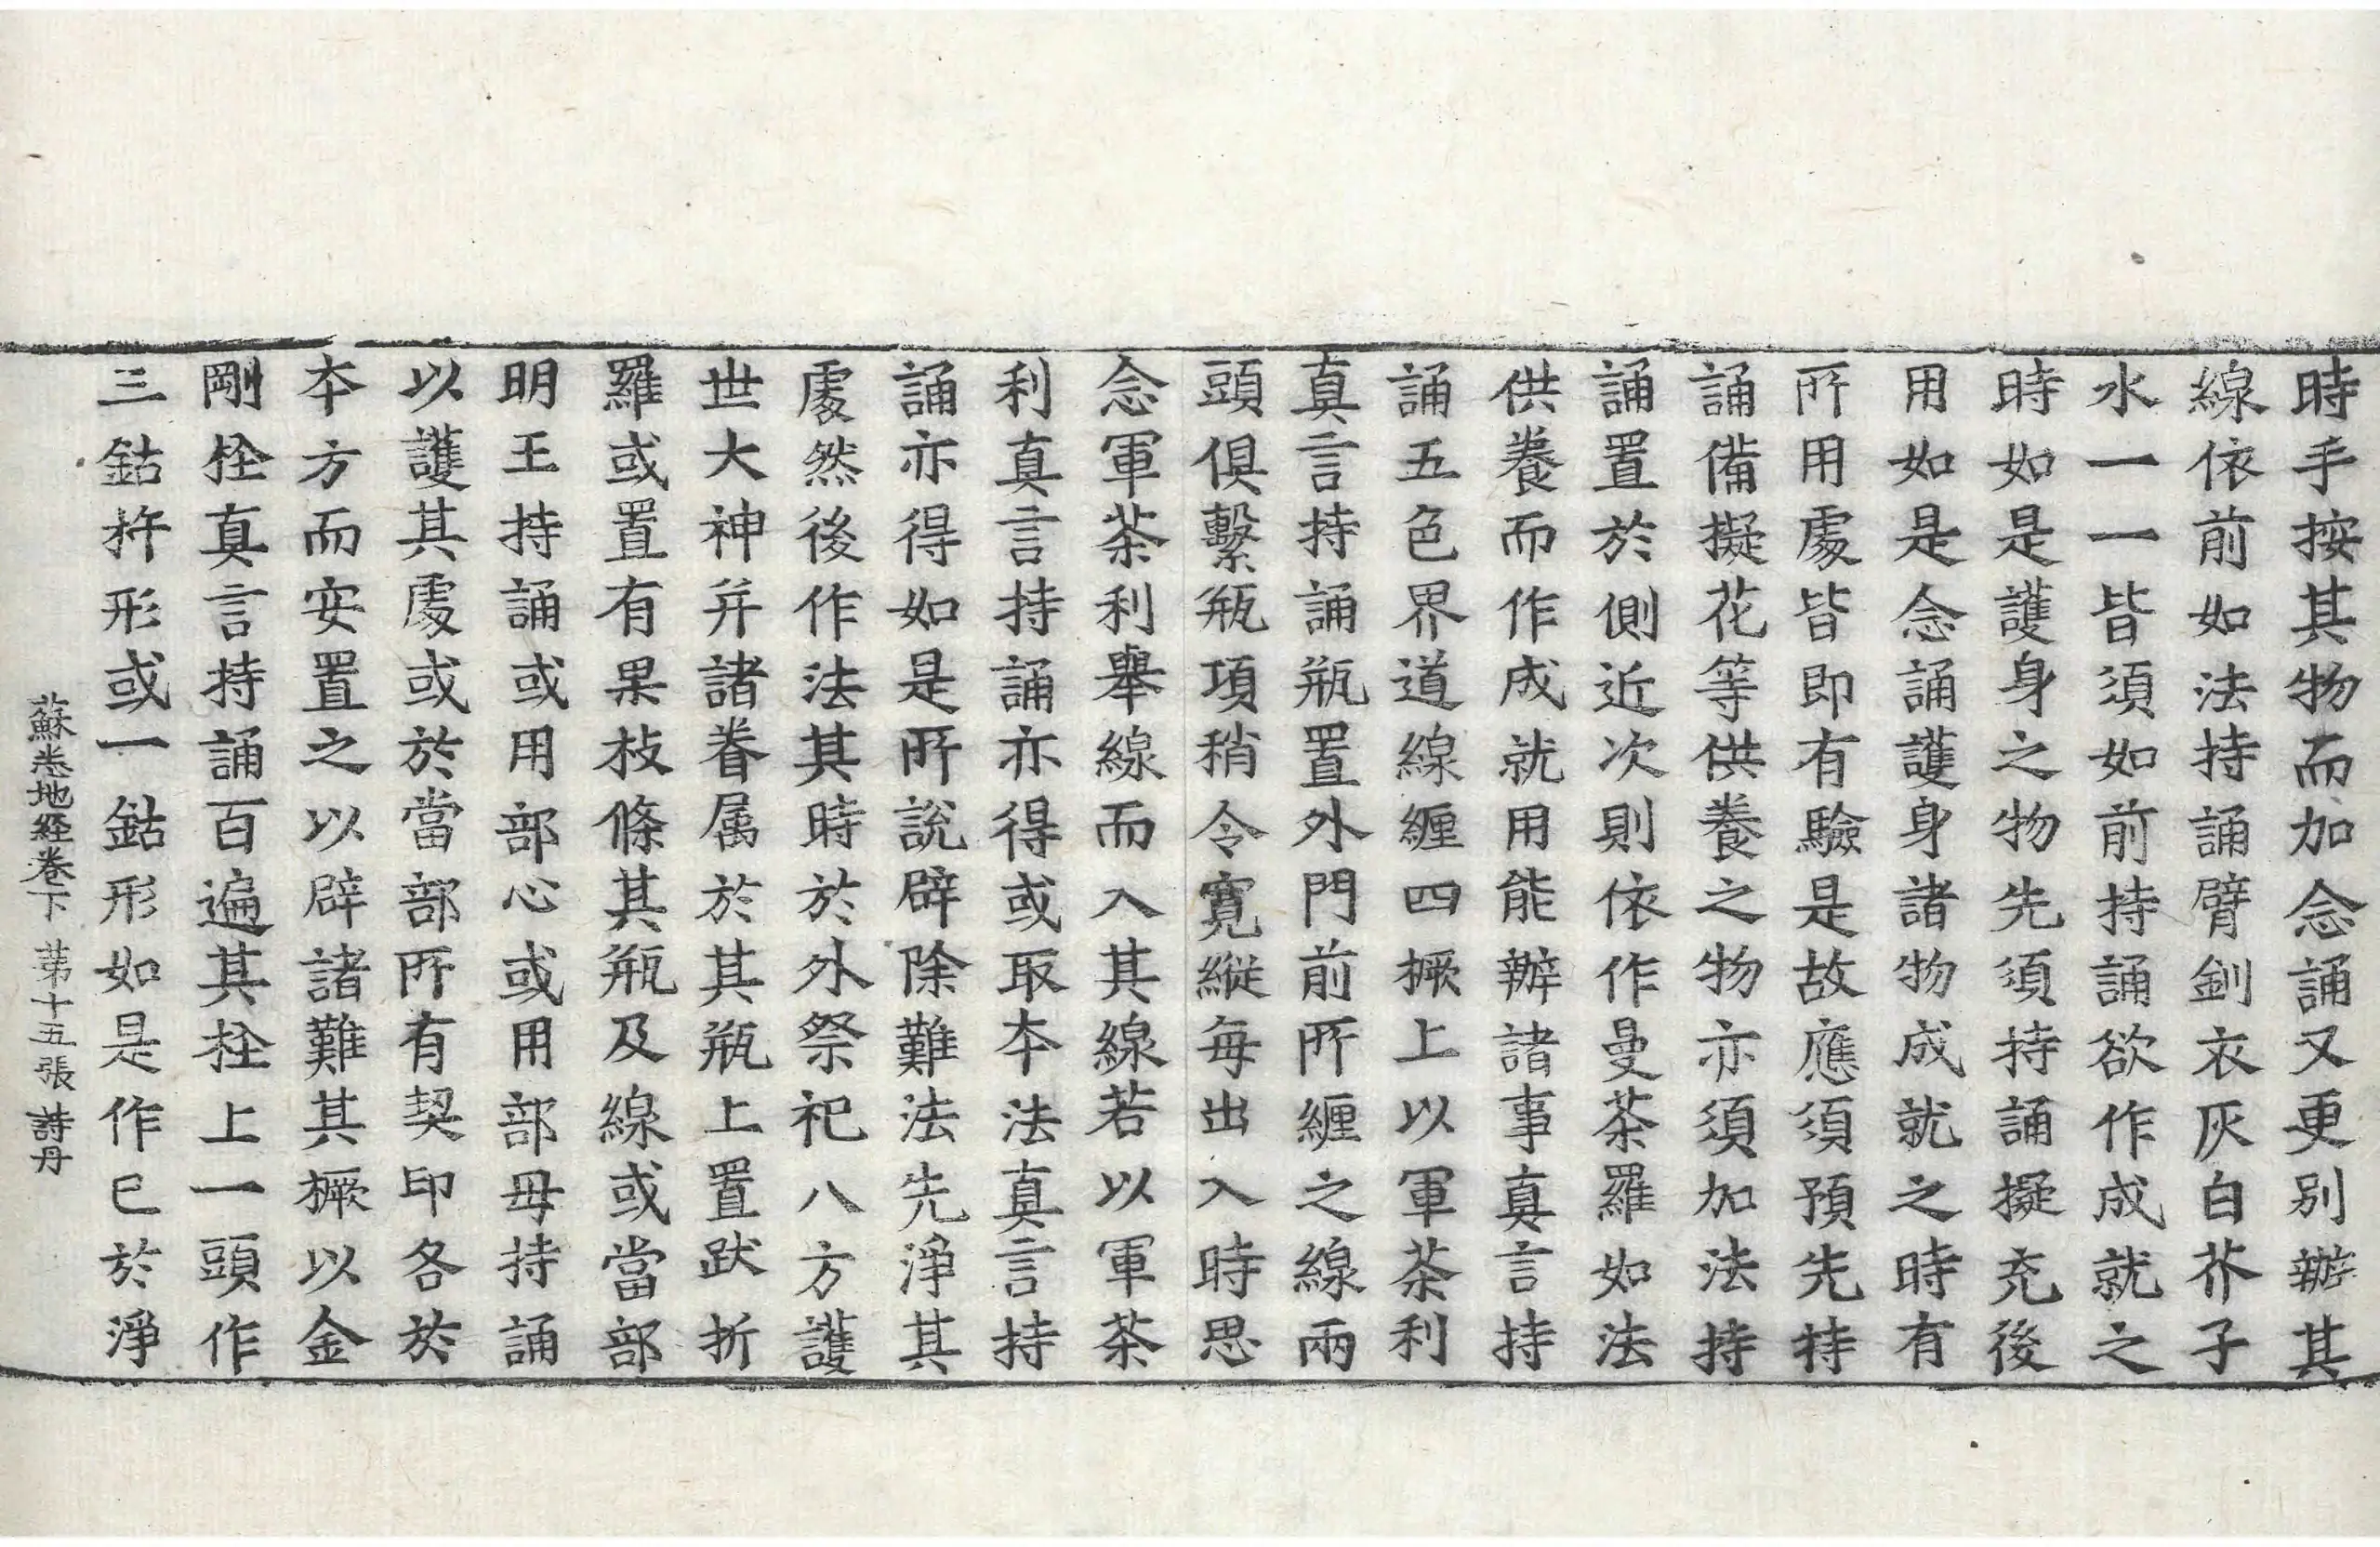 時手按其物而加念誦又更別辦其
線依前如法持誦臂釧衣灰白芥子
水一一皆須如前持誦欲作成就之
時如是護身之物先須持誦擬充後
用如是念誦護身諸物成就之時有
所用處皆即有驗是故應須預先持
誦備擬花等供養之物亦須加法持
誦置於側近次則依作曼荼羅如法
供養而作成就用能辦諸事真言持
誦五色界道線纏四橛上以軍荼利
真言持誦瓶置外門前所纏之線兩
頭俱繫瓶項稍令寬縱每出入時思
念軍荼利舉線而入其線若以軍荼
利真言持誦亦得或取本法真言持
誦亦得如是所說辟除難法先淨其
處然後作法其時於外祭祀八方護
世大神并諸眷属於其瓶上置跋折
羅或置有果枝條其瓶及線或當部
明王持誦或用部心或用部母持誦
以護其處或於當部所有契印各於
本方而安置之以辟諸難其橛以金
剛栓真言持誦百遍其栓上一頭作
三鈷杵形或一鈷形如是作已於淨
蘇悉地經卷下 第十五張 詩丹